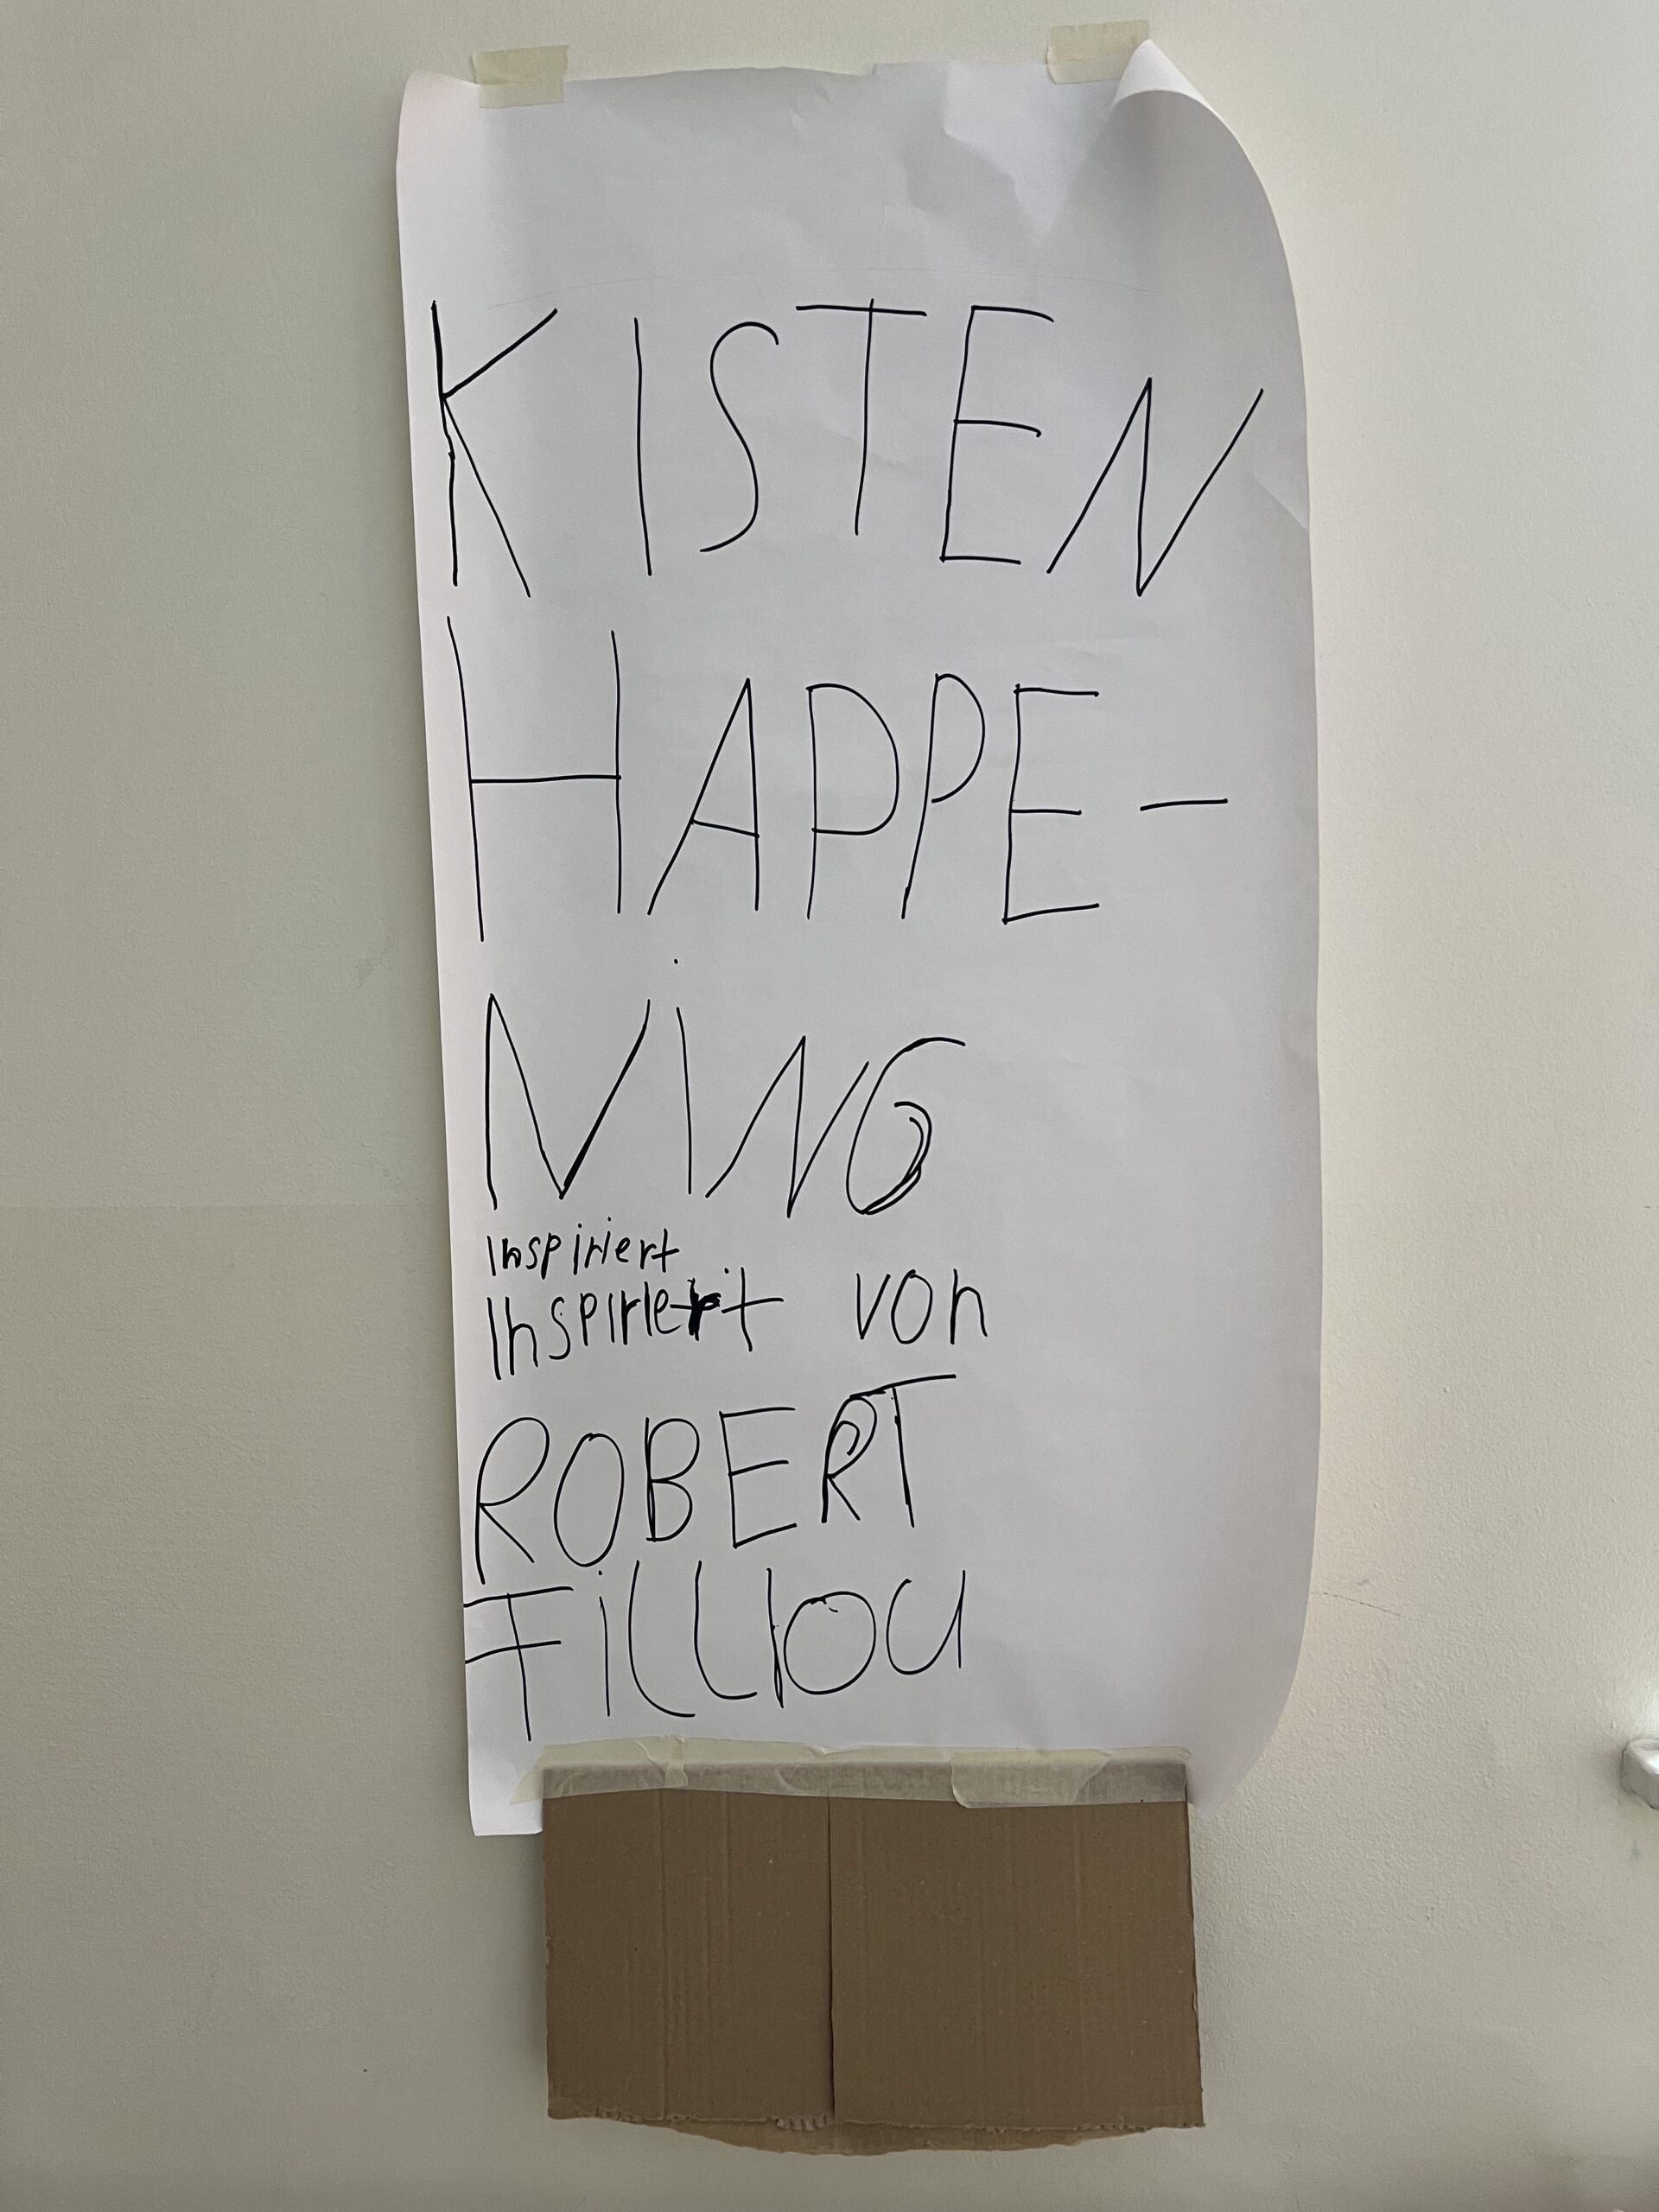 KISTEN
HAPPE-
NING
Inspiriert
Inspiriert von
ROBERT
FiLLIOU